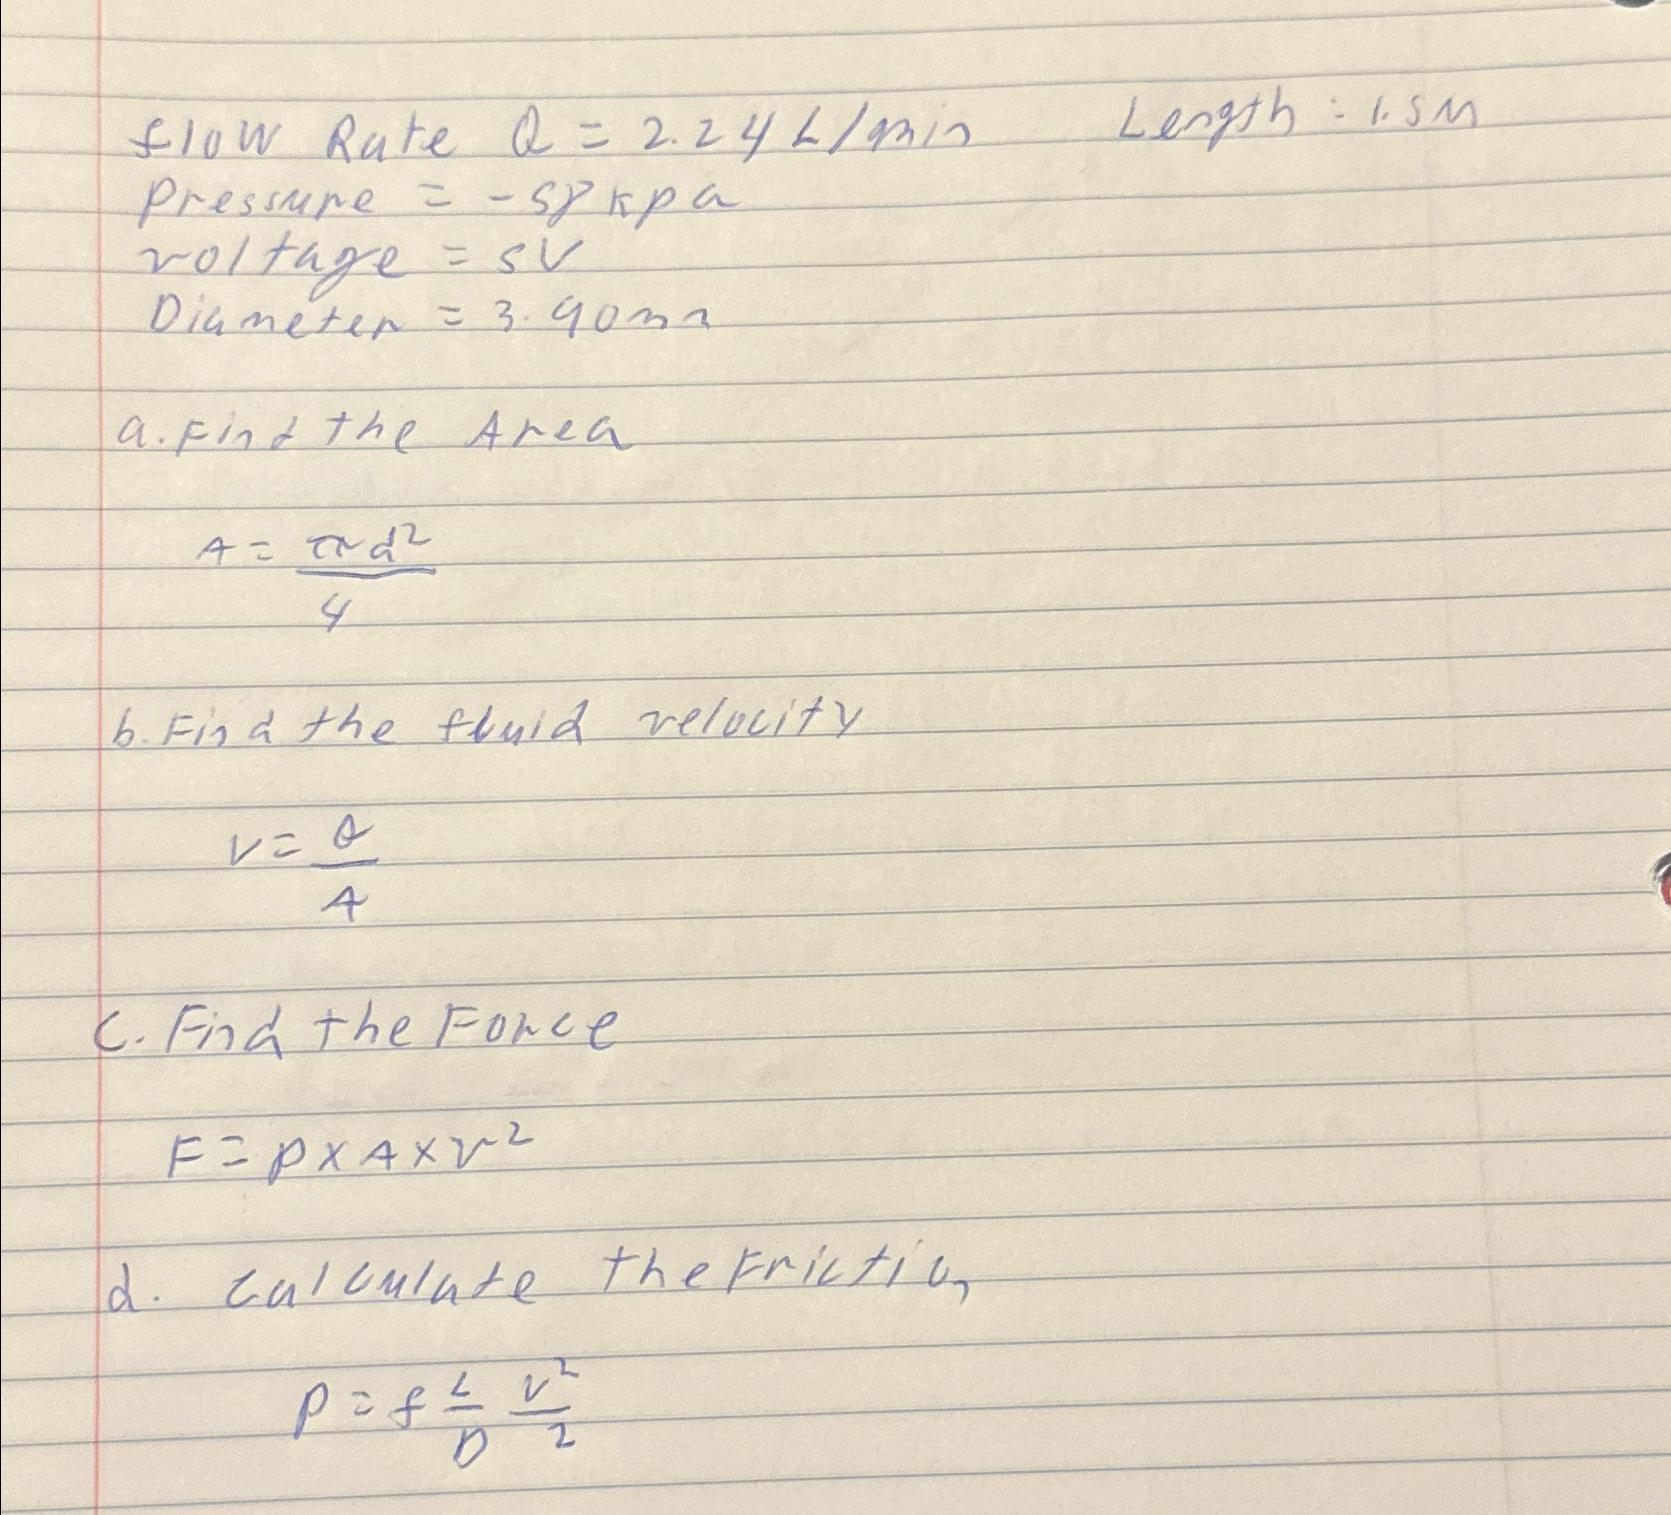 flow Rate Q = 2.24 L/min Length : 1.5M
Pressure = -58 kpa
voltage = 5V
Diameter = 3.90mm
a. Find the Area
A = πd²
4
b. Find the fluid velocity
V = Q
A
C. Find the Force
F = ρ x A x v²
d. Calculate the Friction
P = f L/D V²/2